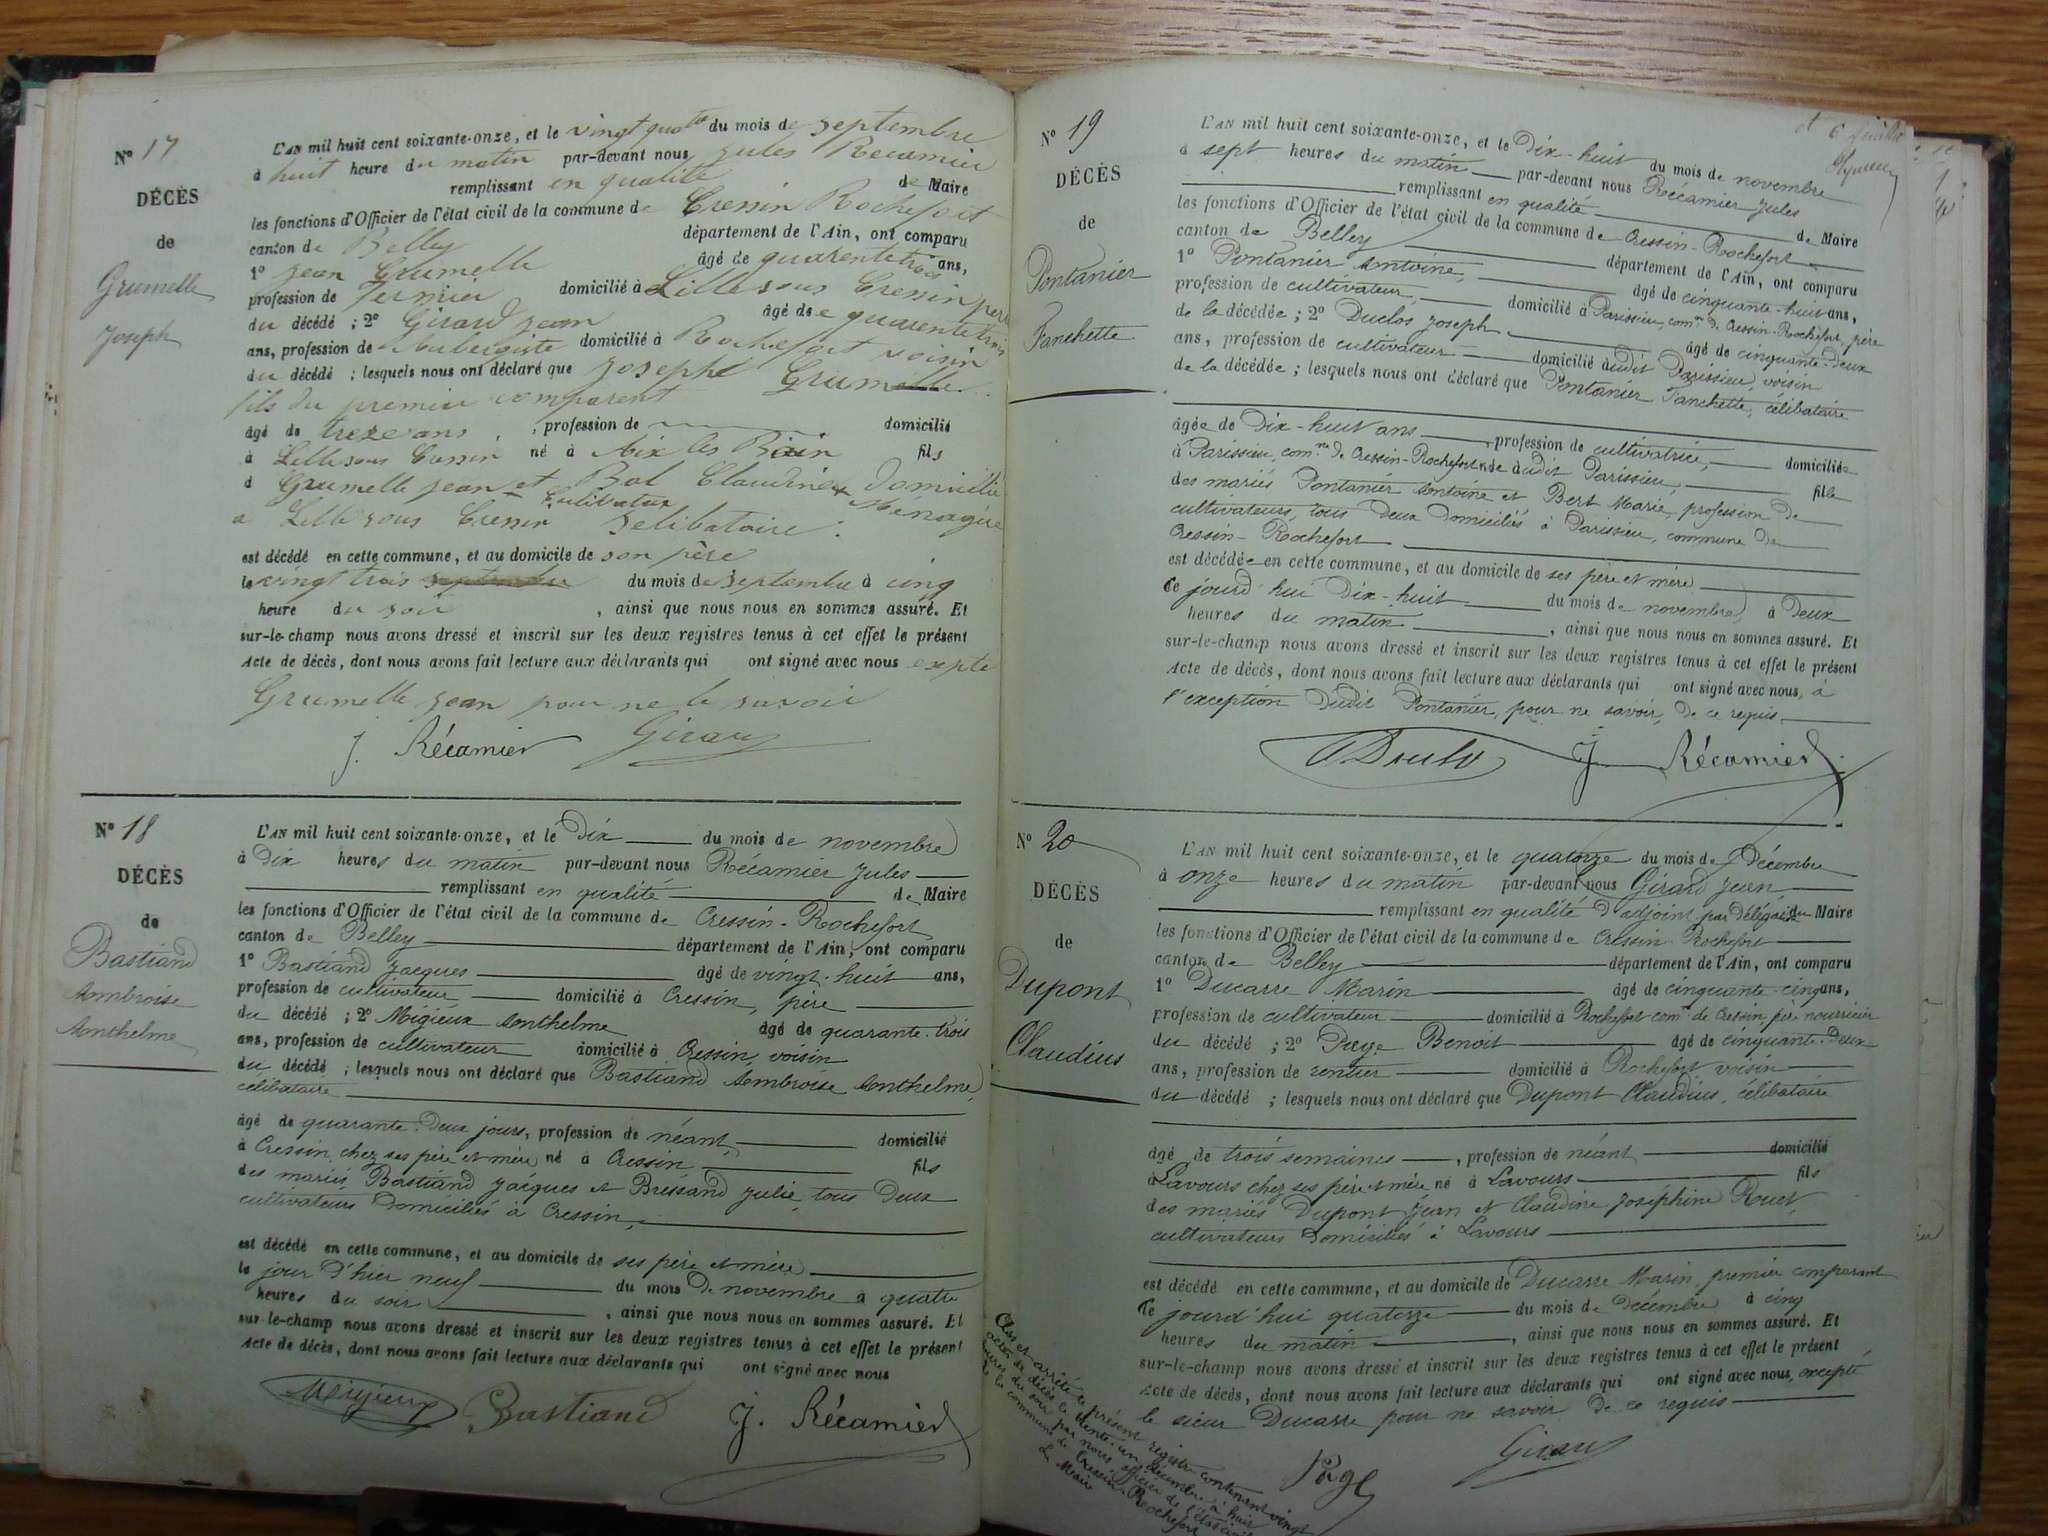 N° 17
DÉCÈS
de
Grumelle
Joseph
L'AN mil huit cent soixante-onze, et le vingt quatre du mois de septembre
à huit heure du matin par-devant nous Jules Recamier
remplissant en qualité de Maire
les fonctions d'Officier de l'état civil de la commune de Cressin Rochefort
canton de Belley département de l'Ain, ont comparu
1° Jean Grumelle âgé de quarente trois ans,
profession de Fermier domicilié à Lille sous Cressin père
du décédé ; 2° Girard Jean âgé de quarente trois
ans, profession de Aubergiste domicilié à Rochefort voisin
du décédé ; lesquels nous ont déclaré que Joseph Grumelle
fils du premier comparent
âgé de treze ans , profession de domicilié
à Lille sous Cressin né à Aix les Bain fils
d Grumelle Jean et Bal Claudine Domicillié
Cultivateur Ménagère
a Lille sous Cressin selibataire.
est décédé en cette commune, et au domicile de son père
le vingt trois septembre du mois de septembre à cinq
heure du soir , ainsi que nous nous en sommes assuré. Et
sur-le-champ nous avons dressé et inscrit sur les deux registres tenus à cet effet le présent
Acte de décès, dont nous avons fait lecture aux déclarants qui ont signé avec nous expte
Grumelle Jean pour ne le savoir
J. Récamier Girard
N° 18
DÉCÈS
de
Bastiand
Ambroise
Anthelme
L'AN mil huit cent soixante-onze, et le Dix du mois de novembre
à Dix heures du matin par-devant nous Récamier Jules
remplissant en qualité de Maire
les fonctions d'Officier de l'état civil de la commune de Cressin-Rochefort
canton de Belley département de l'Ain, ont comparu
1° Bastiand Jacques âgé de vingt-huit ans,
profession de cultivateur, domicilié à Cressin, père
du décédé ; 2° Migieux Anthelme âgé de quarante-trois
ans, profession de cultivateur domicilié à Cressin, voisin
du décédé ; lesquels nous ont déclaré que Bastiand Ambroise Anthelme,
célibataire
âgé de quarante-deux jours, profession de néant, domicilié
à Cressin, chez ses père et mère, né à Cressin, fils
des mariés Bastiand Jacques et Bressand Julie, tous deux
cultivateurs domiciliés à Cressin,
est décédé en cette commune, et au domicile de ses père et mère
le jour d'hier neuf du mois de novembre à quatre
heures du soir , ainsi que nous nous en sommes assuré. Et
sur-le-champ nous avons dressé et inscrit sur les deux registres tenus à cet effet le présent
Acte de décès, dont nous avons fait lecture aux déclarants qui ont signé avec nous
Migieux Bastiand J. Récamier
et 6e feuillet
N° 19
DÉCÈS
de
Pontanier
Fanchette
L'AN mil huit cent soixante-onze, et le Dix-huit du mois de novembre
à sept heures du matin par-devant nous Récamier Jules
remplissant en qualité de Maire
les fonctions d'Officier de l'état civil de la commune de Cressin-Rochefort
canton de Belley département de l'Ain, ont comparu
1° Pontanier Antoine, âgé de cinquante-huit ans,
profession de cultivateur, domicilié à Parissieu, comne de Cressin-Rochefort, père
de la décédée ; 2° Duclos Joseph âgé de cinquante-deux
ans, profession de cultivateur domicilié àudit Parissieu, voisin
de la décédée ; lesquels nous ont déclaré que Pontanier Fanchette, célibataire
âgée de Dix-huit ans , profession de cultivatrice, domiciliée
à Parissieu, comne de Cressin-Rochefort née àudit Parissieu, fille
des mariés Pontanier Antoine et Bert Marie, profession de
cultivateurs, tous deux domiciliés à Parissieu, commune de
Cressin-Rochefort
est décédée en cette commune, et au domicile de ses père et mère
Ce jourd'hui Dix-huit du mois de novembre à deux
heures du matin , ainsi que nous nous en sommes assuré. Et
sur-le-champ nous avons dressé et inscrit sur les deux registres tenus à cet effet le présent
Acte de décès, dont nous avons fait lecture aux déclarants qui ont signé avec nous, à
l'exception dudit Pontanier, pour ne savoir, de ce requis.
J. Récamier
N° 20
DÉCÈS
de
Dupont
Claudius
L'AN mil huit cent soixante-onze, et le quatorze du mois de Décembre
à onze heures du matin par-devant nous Girard Jean
remplissant en qualité d'adjoint par délégation du Maire
les fonctions d'Officier de l'état civil de la commune de Cressin Rochefort
canton de Belley département de l'Ain, ont comparu
1° Ducarre Marin âgé de cinquante cinq ans,
profession de cultivateur domicilié à Rochefort comne de Cressin, père nourricier
du décédé ; 2° Page Benoit âgé de cinquante-deux
ans, profession de rentier domicilié à Rochefort voisin
du décédé ; lesquels nous ont déclaré que Dupont Claudius, célibataire
âgé de trois semaines , profession de néant domicilié
à Lavours chez ses père et mère né à Lavours fils
des mariés Dupont Jean et Claudine Joséphine Rouet,
cultivateurs domiciliés à Lavours
est décédé en cette commune, et au domicile de Ducarre Marin, premier comparant
Ce jourd'hui quatorze du mois de décembre à cinq
heures du matin , ainsi que nous nous en sommes assuré. Et
sur-le-champ nous avons dressé et inscrit sur les deux registres tenus à cet effet le présent
Acte de décès, dont nous avons fait lecture aux déclarants qui ont signé avec nous, excepté
le sieur Ducarre pour ne savoir de ce requis
Page Girard
Clos et arrêté le présent registre contenant vingt
actes de décès le trente-un décembre à huit
heures du soir par nous officier de l'état civil
de la commune de Cressin-Rochefort
Le Maire